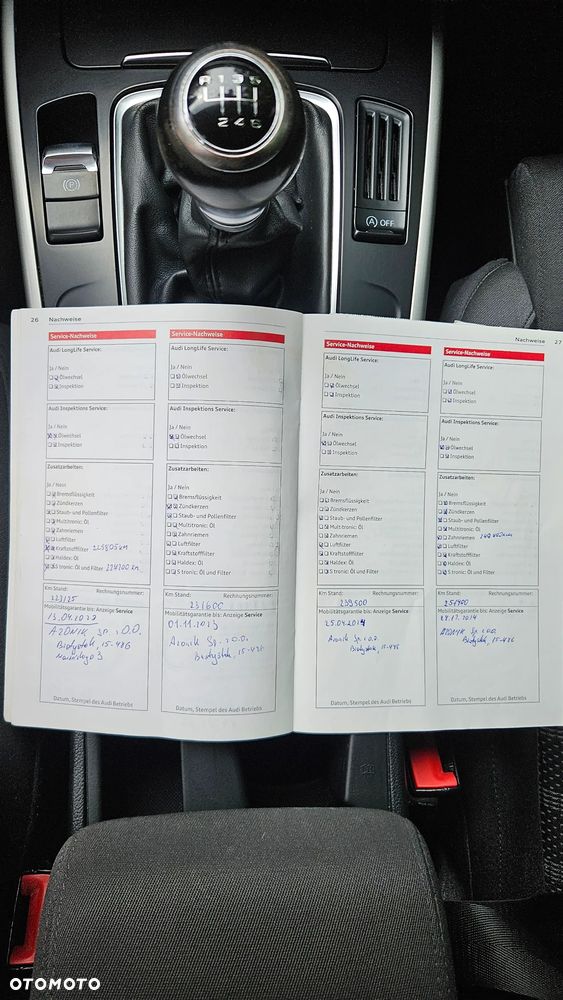 R 1 3 5
2 4 6
(P)
(A) OFF
26 Nachweise
Service-Nachweise
Audi LongLife Service:
Ja / Nein
Ölwechsel
Inspektion
Audi Inspektions Service:
Ja / Nein
Ölwechsel
Inspektion
Zusatzarbeiten:
Ja / Nein
Bremsflüssigkeit
Zündkerzen
Staub- und Pollenfilter
Multitronic: Öl
Zahnriemen
Luftfilter
Kraftstofffilter 225805km
Haldex: Öl
S tronic: Öl und Filter 224200 km
Km Stand: Rechnungsnummer:
223125
Mobilitätsgarantie bis: Anzeige Service
13.04.2022
AZONIK Sp. z O.O.
Białystok, 15-486
Datum, Stempel des Audi Betriebs
Service-Nachweise
Audi LongLife Service:
Ja / Nein
Ölwechsel
Inspektion
Audi Inspektions Service:
Ja / Nein
Ölwechsel
Inspektion
Zusatzarbeiten:
Ja / Nein
Bremsflüssigkeit
Zündkerzen
Staub- und Pollenfilter
Multitronic: Öl
Zahnriemen
Luftfilter
Kraftstofffilter
Haldex: Öl
S tronic: Öl und Filter
Km Stand: Rechnungsnummer:
231600
Mobilitätsgarantie bis: Anzeige Service
01.11.2023
Azonik Sp. z o.o.
Białystok, 15-486
Datum, Stempel des Audi Betriebs
Nachweise 27
Service-Nachweise
Audi LongLife Service:
Ja / Nein
Ölwechsel
Inspektion
Audi Inspektions Service:
Ja / Nein
Ölwechsel
Inspektion
Zusatzarbeiten:
Ja / Nein
Bremsflüssigkeit
Zündkerzen
Staub- und Pollenfilter
Multitronic: Öl
Zahnriemen
Luftfilter
Kraftstofffilter
Haldex: Öl
S tronic: Öl und Filter
Km Stand: Rechnungsnummer:
239500
Mobilitätsgarantie bis: Anzeige Service
25.04.2024
Azonik Sp. z o.o.
Białystok, 15-486
Datum, Stempel des Audi Betriebs
Service-Nachweise
Audi LongLife Service:
Ja / Nein
Ölwechsel
Inspektion
Audi Inspektions Service:
Ja / Nein
Ölwechsel
Inspektion
Zusatzarbeiten:
Ja / Nein
Bremsflüssigkeit
Zündkerzen
Staub- und Pollenfilter
Multitronic: Öl
Zahnriemen
Luftfilter
Kraftstofffilter
Haldex: Öl
S tronic: Öl und Filter
Km Stand: Rechnungsnummer:
Mobilitätsgarantie bis: Anzeige Service
Azonik Sp. z o.o.
Białystok, 15-486
Datum, Stempel des Audi Betriebs
OTOMOTO